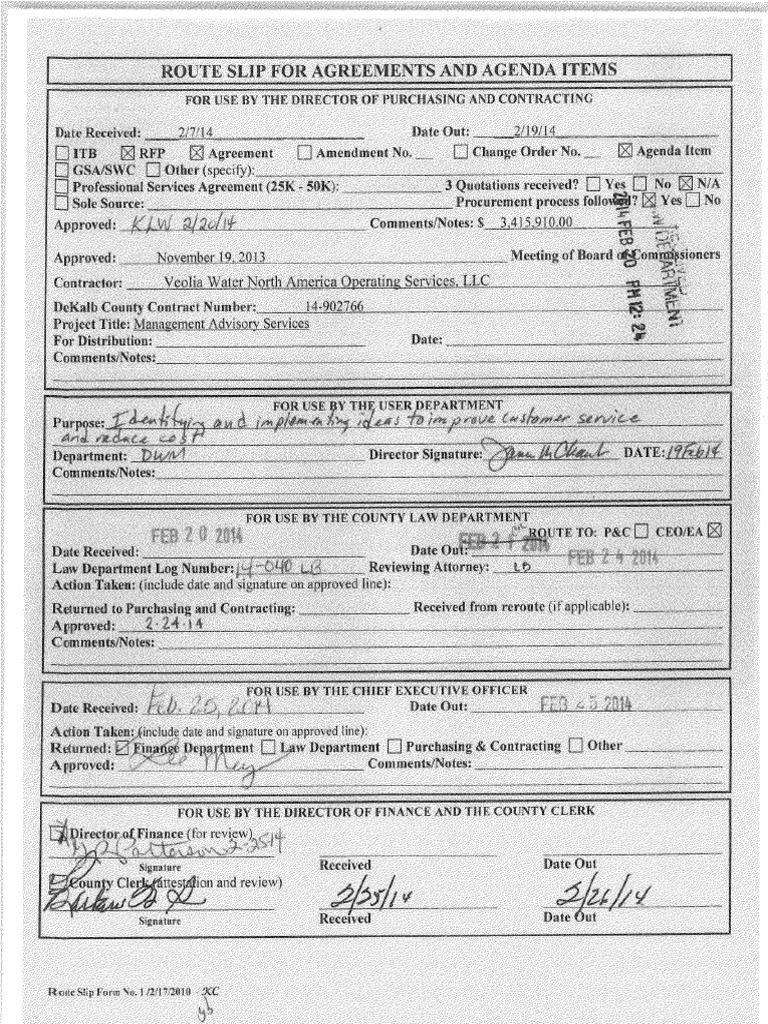 ROUTE SLIP FOR AGREEMENTS AND AGENDA ITEMS
FOR USE BY THE DIRECTOR OF PURCHASING AND CONTRACTING
Date Received: 2/7/14 Date Out: 2/19/14
☐ ITB ☒ RFP ☒ Agreement ☐ Amendment No. __ ☐ Change Order No. __ ☒ Agenda Item
☐ GSA/SWC ☐ Other (specify):
☐ Professional Services Agreement (25K - 50K): 3 Quotations received? ☐ Yes ☐ No ☒ N/A
☐ Sole Source: Procurement process followed? ☒ Yes ☐ No
Approved: KLW 2/20/14 Comments/Notes: $ 3,415,910.00
2014 FEB 20 PM 12:24
Approved: November 19, 2013 Meeting of Board of Commissioners
Contractor: Veolia Water North America Operating Services, LLC
DeKalb County Contract Number: 14-902766
Project Title: Management Advisory Services
For Distribution: Date:
Comments/Notes:
FOR USE BY THE USER DEPARTMENT
Purpose: Identifying and implementing ideas to improve customer service
and reduce cost
Department: DWM Director Signature: DATE: 19Feb14
Comments/Notes:
FOR USE BY THE COUNTY LAW DEPARTMENT
FEB 20 2014 FEB 21 2014 ROUTE TO: P&C ☐ CEO/EA ☒
Date Received: Date Out: FEB 24 2014
Law Department Log Number: 14-040 LB Reviewing Attorney: LB
Action Taken: (include date and signature on approved line):
Returned to Purchasing and Contracting: Received from reroute (if applicable):
Approved: 2-24-14
Comments/Notes:
FOR USE BY THE CHIEF EXECUTIVE OFFICER
Date Received: Feb. 25, 2014 Date Out: FEB 25 2014
Action Taken: (include date and signature on approved line):
Returned: ☑ Finance Department ☐ Law Department ☐ Purchasing & Contracting ☐ Other
Approved: Lee May Comments/Notes:
FOR USE BY THE DIRECTOR OF FINANCE AND THE COUNTY CLERK
Director of Finance (for review)
Patterson 2-25-14
Signature Received Date Out
County Clerk (attestation and review)
2/25/14 2/26/14
Signature Received Date Out
Route Slip Form No. 1 /2/17/2010 - KC
yb